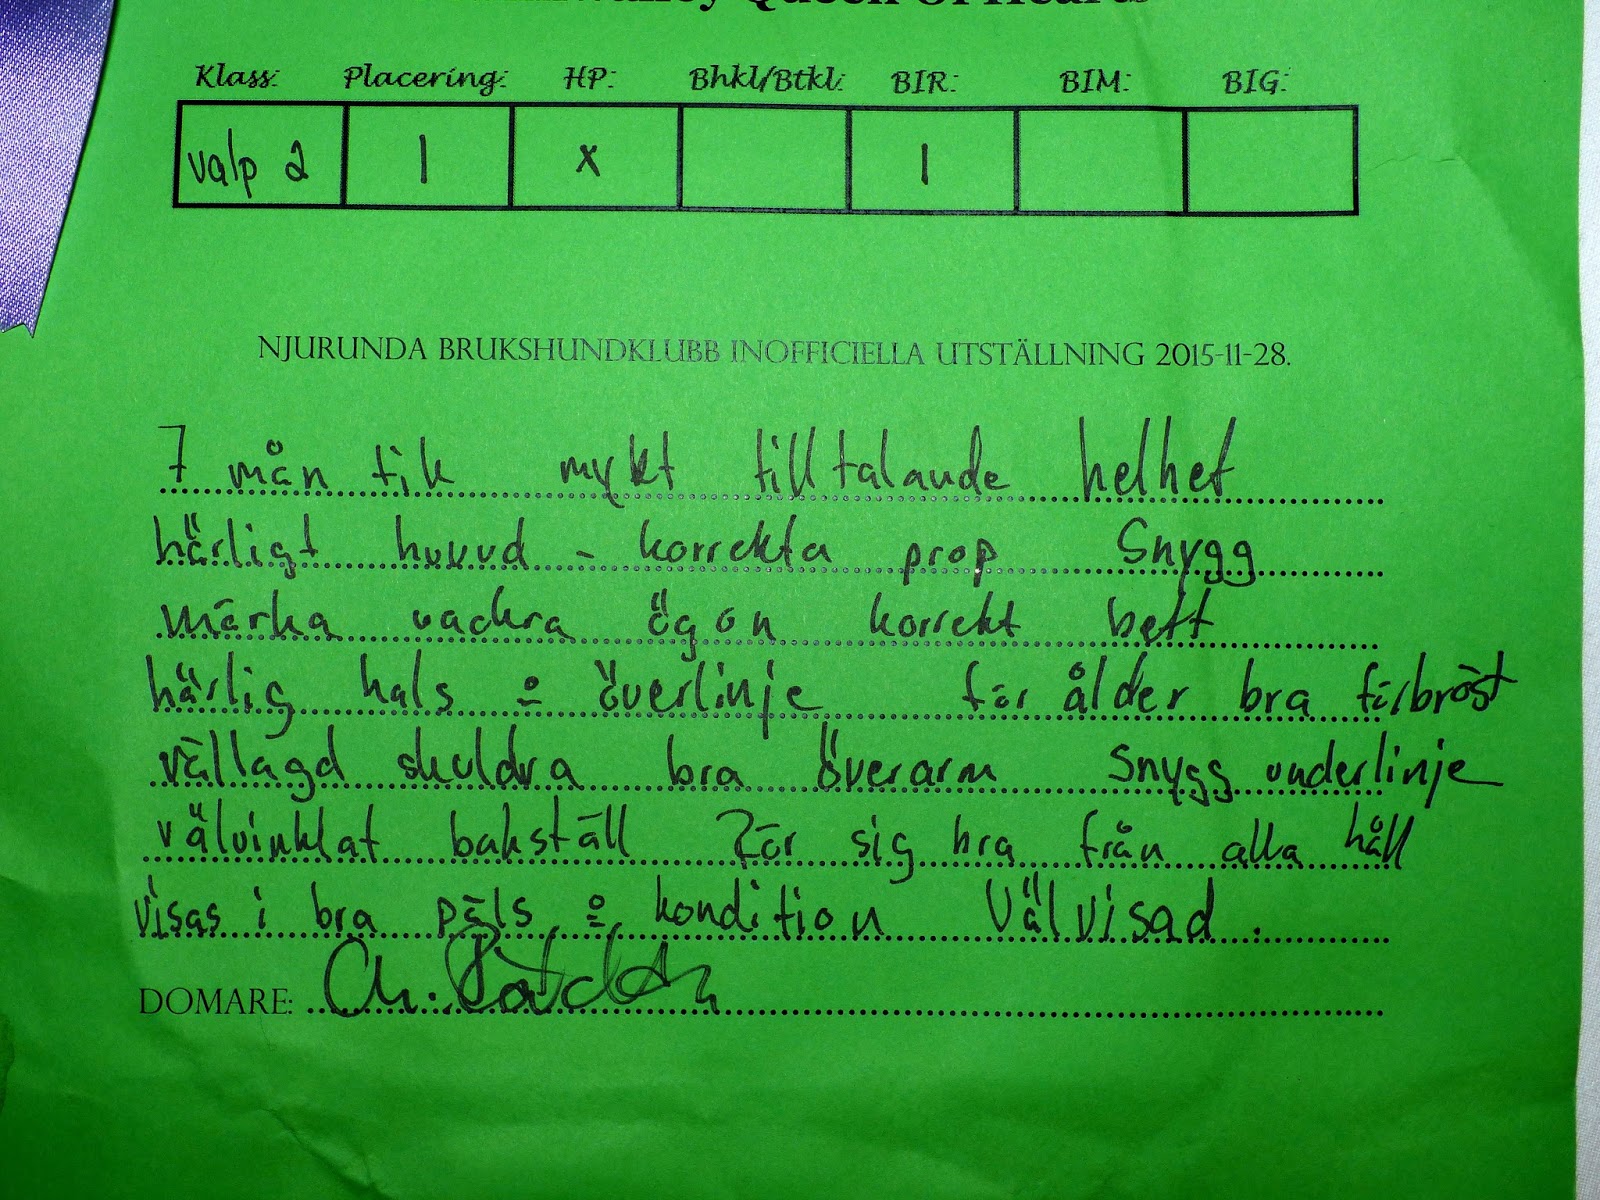 Queen of Hearts
Klass: Placering: HP: Bhkl/Btkl: BIR: BIM: BIG:
valp 2 1 x 1
NJURUNDA BRUKSHUNDKLUBB INOFFICIELLA UTSTÄLLNING 2015-11-28.
7 mån tik mykt tilltalande helhet
härligt huvud - korrekta prop Snygg
märka vackra ögon korrekt bett
härlig hals o överlinje för ålder bra förbröst
vällagd skuldra bra överarm Snygg underlinje
välvinklat bakställ Rör sig bra från alla håll
visas i bra päls o kondition Välvisad.
DOMARE: